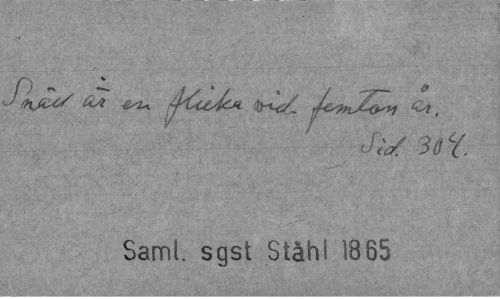 Snäll är en flicka vid femton år.
Sid. 304.
Saml. sgst Ståhl 1865